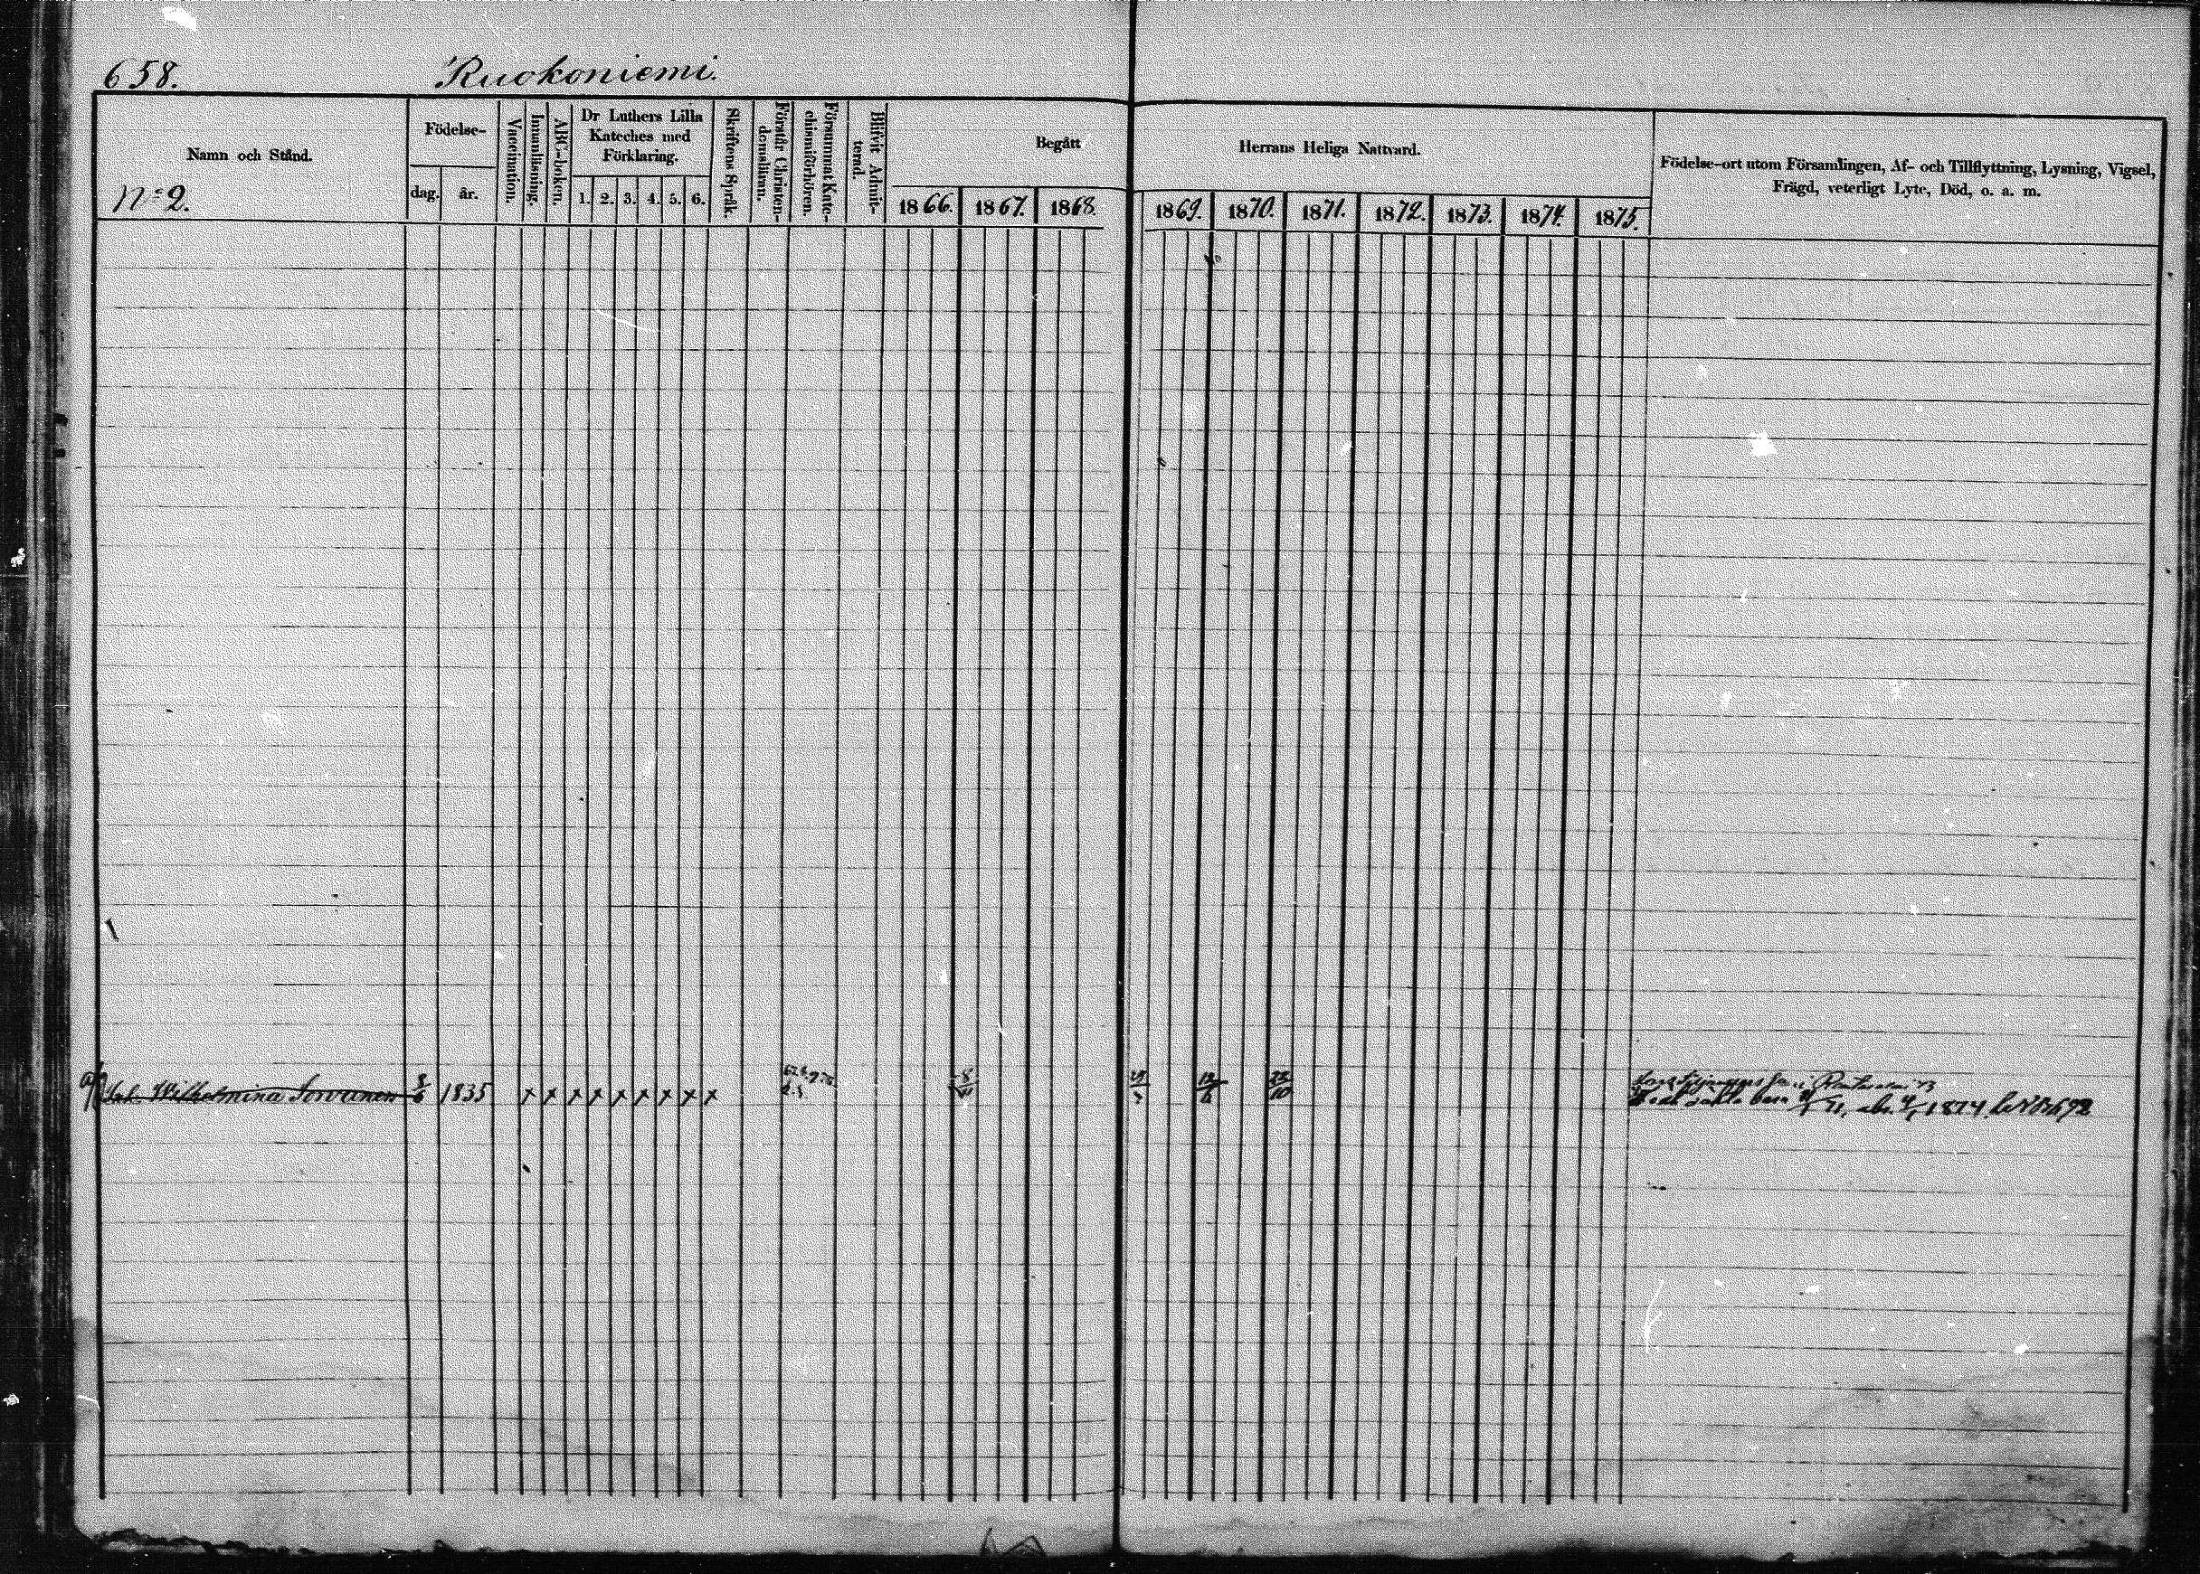 658. Ruokoniemi.
Namn och Stånd.
No 2.
Födelse-
dag. år.
Vaccination.
Innanläsning.
ABC-boken.
Dr Luthers Lilla
Kateches med
Förklaring.
1. 2. 3. 4. 5. 6.
Skriftens Språk.
Förstår Christen-
domsläran.
Försummat Kate-
chismiförhören.
Blifvit Admit-
terad.
Begått
1866. 1867. 1868.
Herrans Heliga Nattvard.
1869. 1870. 1871. 1872. 1873. 1874. 1875.
Födelse-ort utom Församlingen, Af- och Tillflyttning, Lysning, Vigsel,
Frägd, veterligt Lyte, Död, o. a. m.
Wilhelmina 8/6 1835 x x x x x x x x x
1874